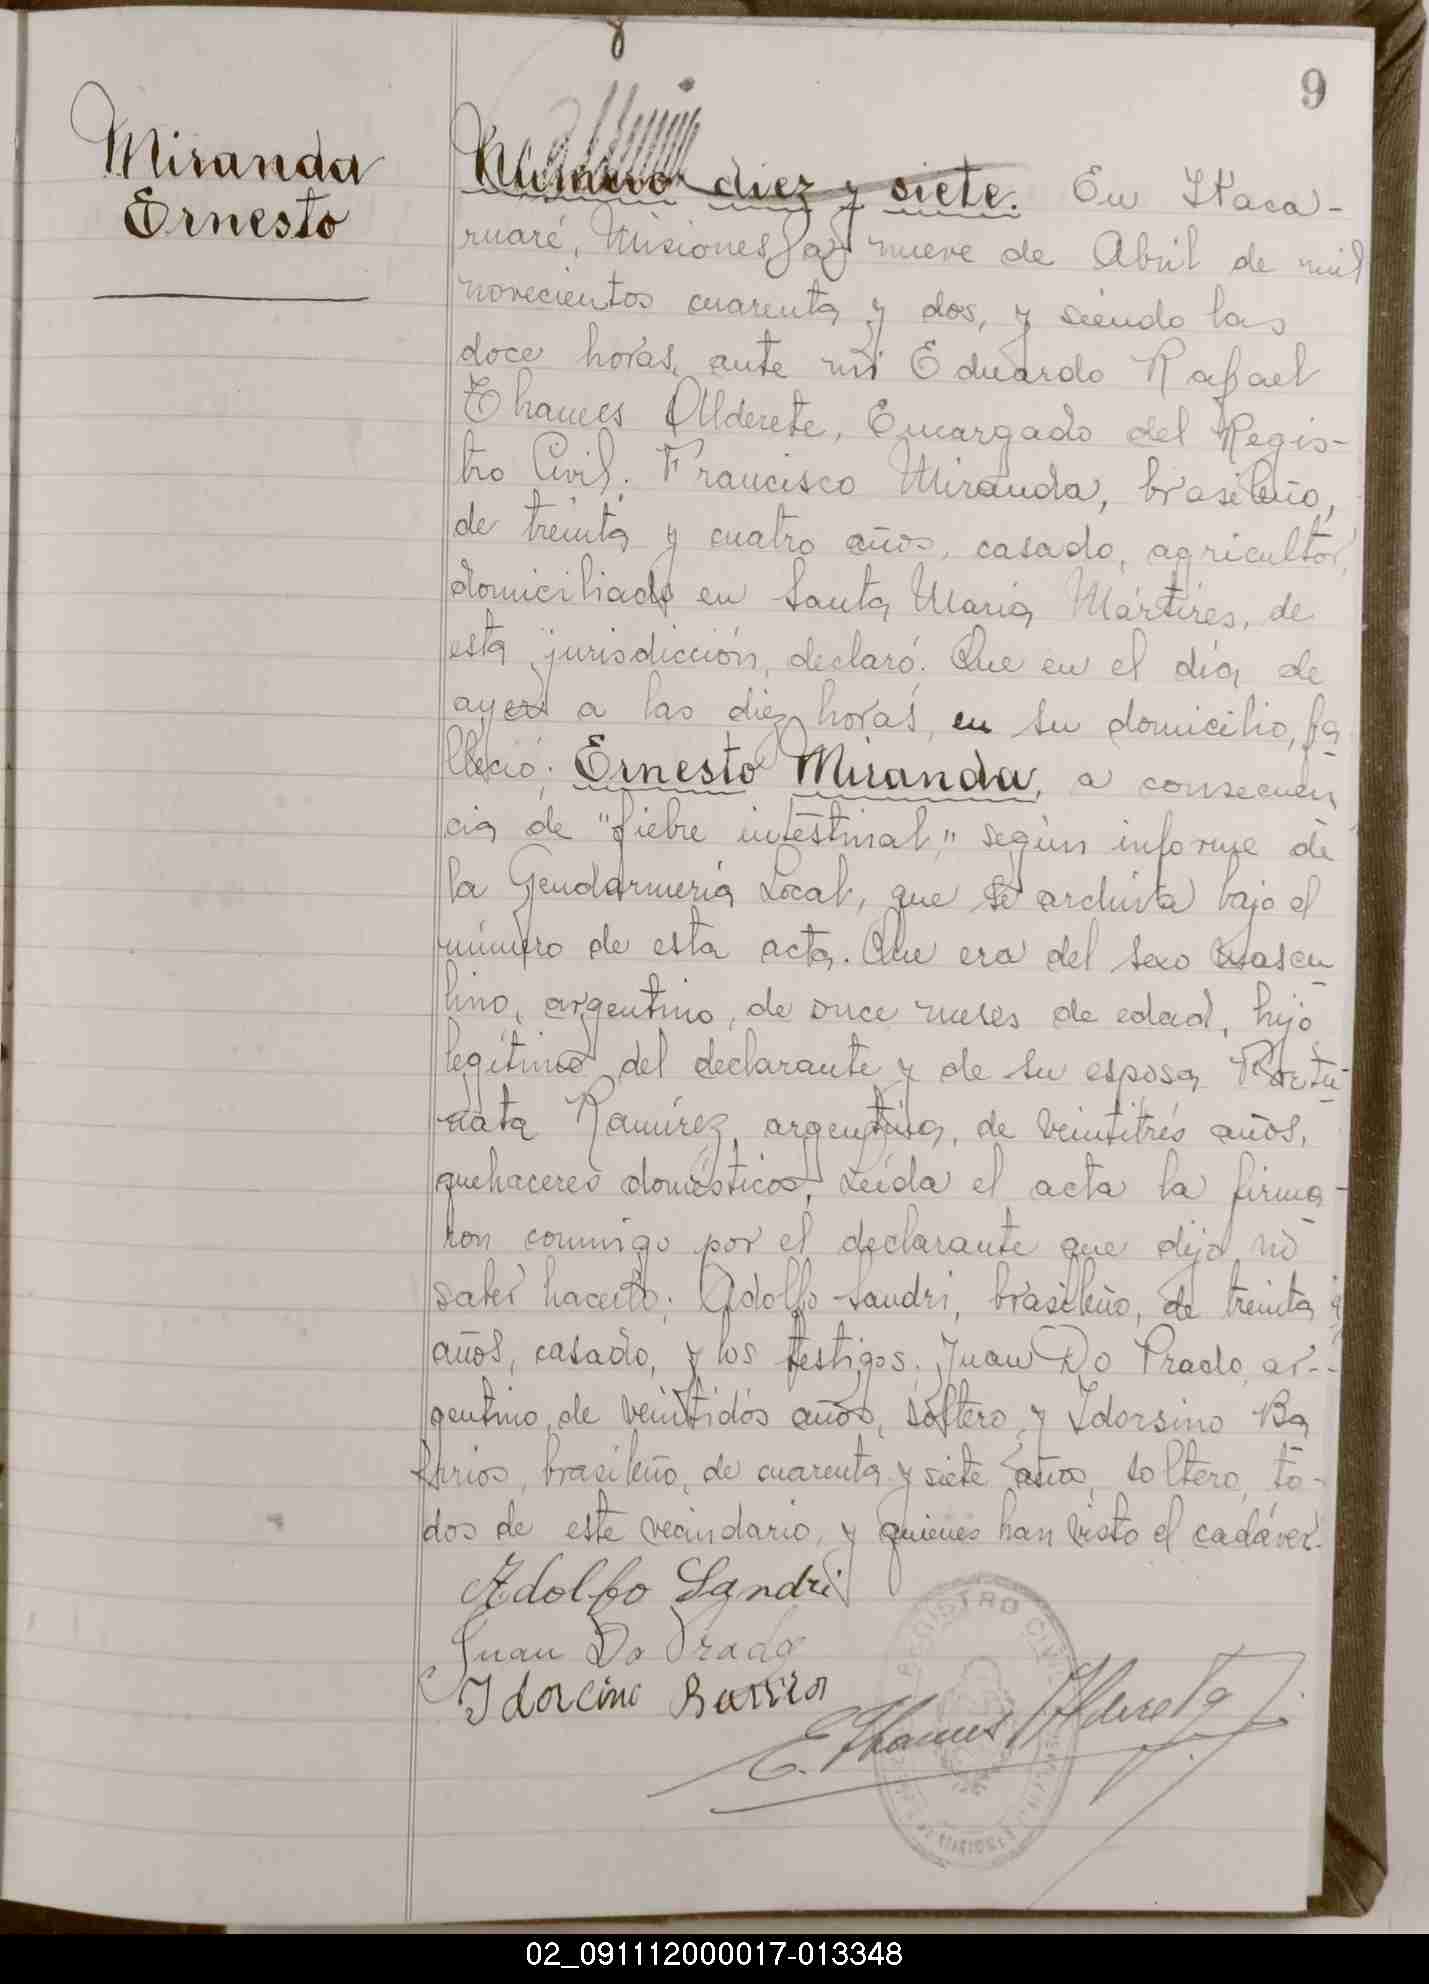 9
Miranda
Ernesto
Número diez y siete. En Itaca-
ruaré, Misiones, a nueve de Abril de mil
novecientos cuarenta y dos, y siendo las
doce horas, ante mi Eduardo Rafael
Thames Alderete, Encargado del Regis-
tro Civil; Francisco Miranda, brasileño,
de treinta y cuatro años, casado, agricultor,
domiciliado en Santa María Mártires, de
esta jurisdicción, declaró: Que en el día de
ayer a las diez horas, en su domicilio, fa
lleció; Ernesto Miranda, a consecuen
cia de "fiebre intestinal," según informe de
la Gendarmería Local, que se archiva bajo el
número de esta acta. Que era del sexo mascu
lino, argentino, de once meses de edad, hijo
legítimo del declarante y de su esposa
Ramírez, argentina, de veintitrés años,
quehaceres domésticos, Leída el acta la firma-
ron conmigo por el declarante que dijo no
saber hacerlo; Adolfo Sandri, brasileño, de treinta
años, casado, y los testigos; Juan Do Prado, ar-
gentino, de veintidós años, soltero, y Idorsino Ba
rrios, brasileño, de cuarenta y siete años, soltero, to-
dos de este vecindario, y quienes han visto el cadáver.
Adolfo Sandri
Juan Do Prado
Idorcino Barrios
E. Thames Alderete
REGISTRO CIVIL
MISIONES
02_091112000017-013348